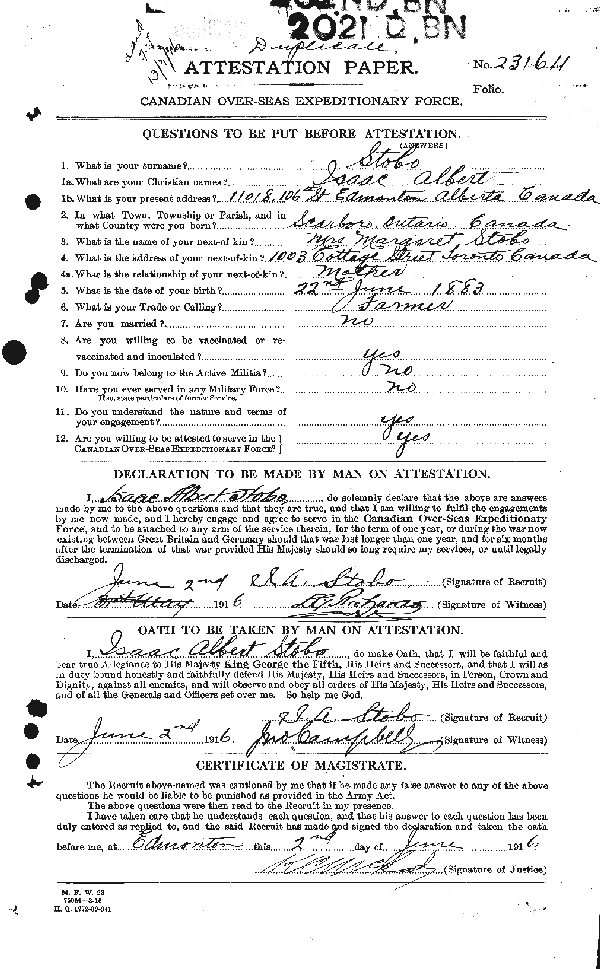 202ND. BN
202ND. BN
Duplicate.
ATTESTATION PAPER.
No. 231641
Folio.
CANADIAN OVER-SEAS EXPEDITIONARY FORCE.
QUESTIONS TO BE PUT BEFORE ATTESTATION.
(ANSWERS)
1. What is your surname? Stobo
1a. What are your Christian names? Isaac Albert
1b. What is your present address? 11018. 106th St Edmonton Alberta Canada
2. In what Town, Township or Parish, and in
what Country were you born? Scarboro Ontario Canada
3. What is the name of your next-of kin? Mrs Margaret Stobo
4. What is the address of your next-of-kin? 1003 Cottage Street Toronto Canada
4a. What is the relationship of your next-of-kin? Mother
5. What is the date of your birth? 22nd June 1883
6. What is your Trade or Calling? Farmer
7. Are you married? no
8. Are you willing to be vaccinated or re-
vaccinated and inoculated? yes
9. Do you now belong to the Active Militia? no
10. Have you ever served in any Military Force? no
If so, state particulars of former Service.
11. Do you understand the nature and terms of
your engagement? yes
12. Are you willing to be attested to serve in the
CANADIAN OVER-SEAS EXPEDITIONARY FORCE? yes
DECLARATION TO BE MADE BY MAN ON ATTESTATION.
I, Isaac Albert Stobo, do solemnly declare that the above are answers
made by me to the above questions and that they are true, and that I am willing to fulfil the engagements
by me now made, and I hereby engage and agree to serve in the Canadian Over-Seas Expeditionary
Force, and to be attached to any arm of the service therein, for the term of one year, or during the war now
existing between Great Britain and Germany should that war last longer than one year, and for six months
after the termination of that war provided His Majesty should so long require my services, or until legally
discharged.
June 2nd I A. Stobo (Signature of Recruit)
Date May 1916 (Signature of Witness)
OATH TO BE TAKEN BY MAN ON ATTESTATION.
I, Isaac Albert Stobo, do make Oath, that I will be faithful and
bear true Allegiance to His Majesty King George the Fifth, His Heirs and Successors, and that I will as
in duty bound honestly and faithfully defend His Majesty, His Heirs and Successors, in Person, Crown and
Dignity, against all enemies, and will observe and obey all orders of His Majesty, His Heirs and Successors,
and of all the Generals and Officers set over me. So help me God.
I A Stobo (Signature of Recruit)
Date June 2nd 1916 Jno Campbell (Signature of Witness)
CERTIFICATE OF MAGISTRATE.
The Recruit above-named was cautioned by me that if he made any false answer to any of the above
questions he would be liable to be punished as provided in the Army Act.
The above questions were then read to the Recruit in my presence.
I have taken care that he understands each question, and that his answer to each question has been
duly entered as replied to, and the said Recruit has made and signed the declaration and taken the oath
before me, at Edmonton this 2nd day of June 1916
(Signature of Justice)
M. F. W. 23
H. Q. 1772-39-841